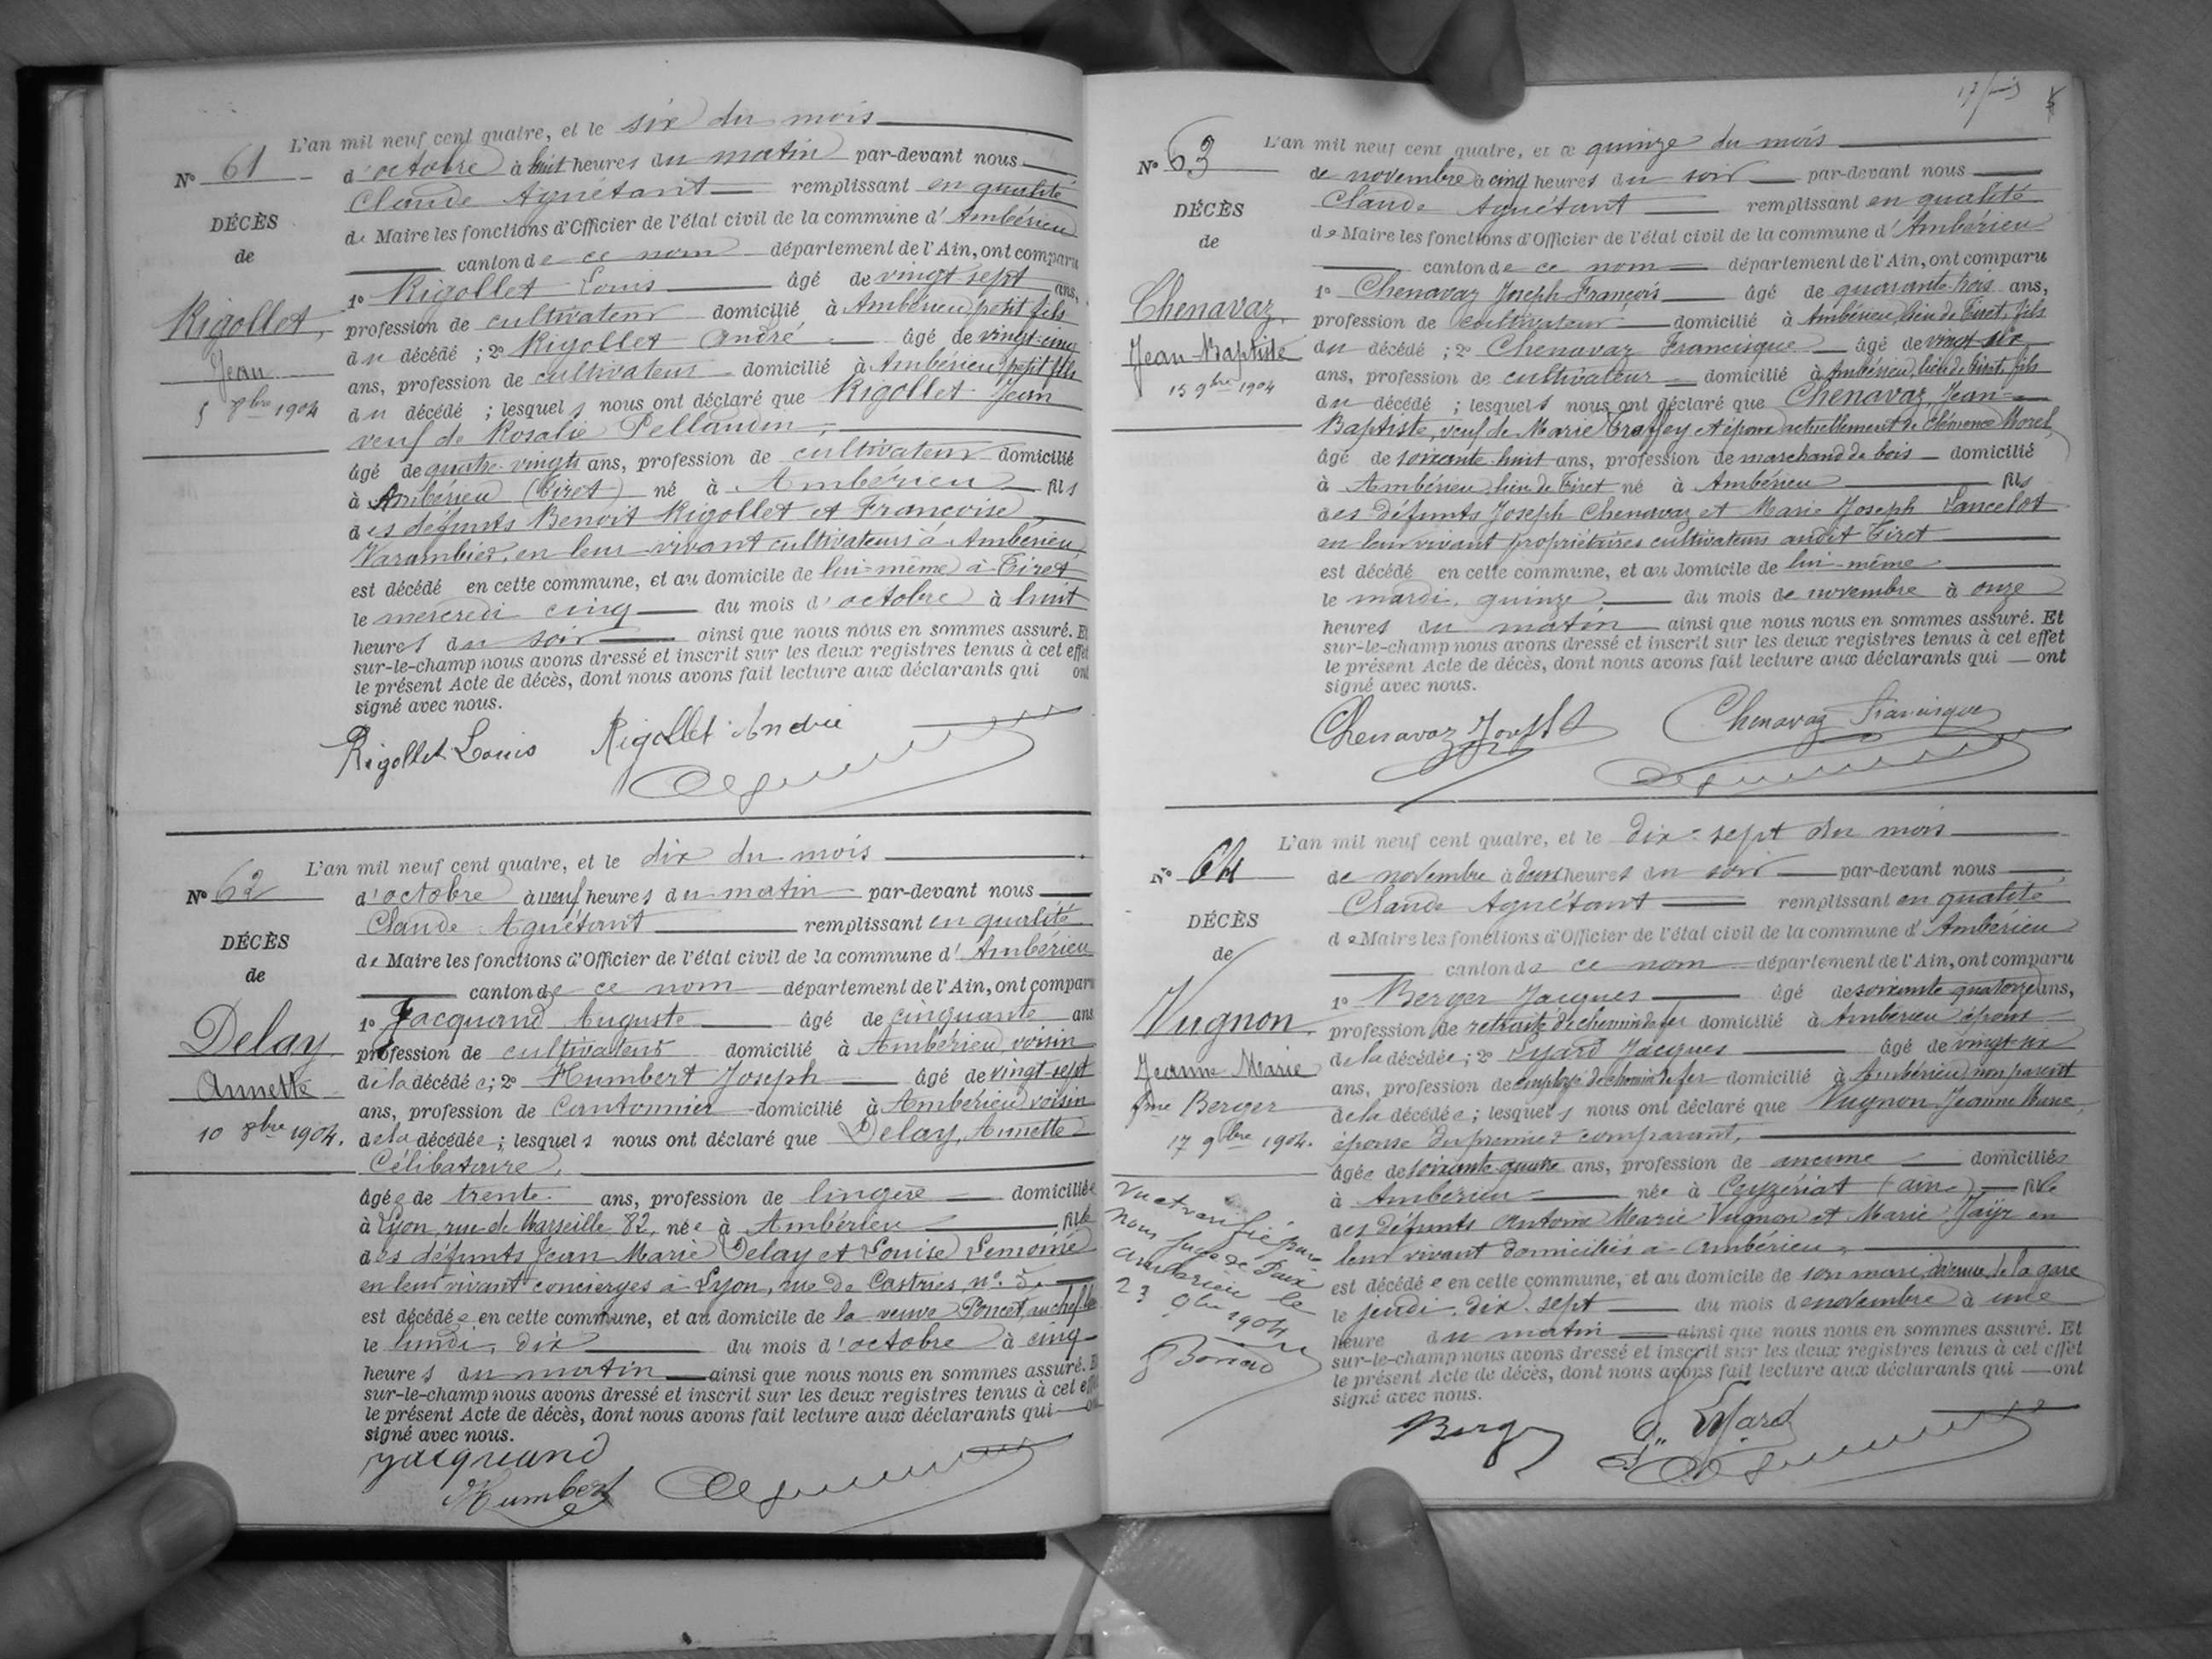 N° 61
DÉCÈS
de
Rigollet,
Jean
5 8bre 1904
L'an mil neuf cent quatre, et le six du mois
d'octobre à huit heures du matin par-devant nous
Claude Aguétant remplissant en qualité
de Maire les fonctions d'Officier de l'état civil de la commune d'Ambérieu
canton de ce nom département de l'Ain, ont comparu
1° Rigollet Louis âgé de vingt-sept ans,
profession de cultivateur domicilié à Ambérieu petit fils
du décédé ; 2° Rigollet André âgé de vingt-cinq
ans, profession de cultivateur domicilié à Ambérieu petit fils
du décédé ; lesquels nous ont déclaré que Rigollet Jean
veuf de Rosalie Pellaudin,
âgé de quatre-vingts ans, profession de cultivateur domicilié
à Ambérieu (Tiret) né à Ambérieu fils
des défunts Benoit Rigollet et Françoise
Varambier, en leur vivant cultivateurs à Ambérieu,
est décédé en cette commune, et au domicile de lui-même à Tiret
le mercredi cinq du mois d'octobre à huit
heures du soir ainsi que nous nous en sommes assuré. Et
sur-le-champ nous avons dressé et inscrit sur les deux registres tenus à cet effet
le présent Acte de décès, dont nous avons fait lecture aux déclarants qui ont
signé avec nous.
Rigollet Louis Rigollet André
N° 62
DÉCÈS
de
Delay
Annette
10 8bre 1904.
L'an mil neuf cent quatre, et le dix du mois
d'octobre à neuf heures du matin par-devant nous
Claude Aguétant remplissant en qualité
de Maire les fonctions d'Officier de l'état civil de la commune d'Ambérieu
canton de ce nom département de l'Ain, ont comparu
1° Jacquand Auguste âgé de cinquante ans
profession de cultivateur domicilié à Ambérieu voisin
de la décédée ; 2° Humbert Joseph âgé de vingt-sept
ans, profession de Cantonnier domicilié à Ambérieu voisin
de la décédée ; lesquels nous ont déclaré que Delay, Annette
Célibataire,
âgée de trente ans, profession de lingère domiciliée
à Lyon, rue de Marseille, 82, née à Ambérieu fille
des défunts Jean Marie Delay et Louise Lemoine
en leur vivant concierges à Lyon, rue de Castries, n°
est décédée en cette commune, et au domicile de la veuve Poncet,
le lundi, dix du mois d'octobre à cinq
heures du matin ainsi que nous nous en sommes assuré. Et
sur-le-champ nous avons dressé et inscrit sur les deux registres tenus à cet effet
le présent Acte de décès, dont nous avons fait lecture aux déclarants qui ont
signé avec nous.
Jacquand
Humbert
N° 63
DÉCÈS
de
Chenavaz,
Jean-Baptiste
15 9bre 1904
L'an mil neuf cent quatre, et le quinze du mois
de novembre à cinq heures du soir par-devant nous
Claude Aguétant remplissant en qualité
de Maire les fonctions d'Officier de l'état civil de la commune d'Ambérieu
canton de ce nom département de l'Ain, ont comparu
1° Chenavaz Joseph-François âgé de quarante-trois ans,
profession de cultivateur domicilié à Ambérieu, lieu de Tiret, fils
du décédé ; 2° Chenavaz Francisque âgé de vingt-six
ans, profession de cultivateur domicilié à Ambérieu, lieu de Tiret, fils
du décédé ; lesquels nous ont déclaré que Chenavaz, Jean-
Baptiste, veuf de Marie Traffey et époux actuellement de Clémence Morel,
âgé de soixante-huit ans, profession de marchand de bois domicilié
à Ambérieu, lieu de Tiret né à Ambérieu fils
des défunts Joseph Chenavaz et Marie Joseph Lancelot
en leur vivant propriétaires cultivateurs audit Tiret
est décédé en cette commune, et au domicile de lui-même
le mardi, quinze, du mois de novembre à onze
heures du matin ainsi que nous nous en sommes assuré. Et
sur-le-champ nous avons dressé et inscrit sur les deux registres tenus à cet effet
le présent Acte de décès, dont nous avons fait lecture aux déclarants qui ont
signé avec nous.
Chenavaz Joseph Chenavaz Francisque
N° 64
DÉCÈS
de
Vugnon
Jeanne Marie
fme Berger
17 9bre 1904.
Vu et vérifié par
nous Juge de Paix
Ambérieu le
23 9bre 1904
L'an mil neuf cent quatre, et le dix-sept du mois
de novembre à deux heures du soir par-devant nous
Claude Aguétant remplissant en qualité
de Maire les fonctions d'Officier de l'état civil de la commune d'Ambérieu
canton de ce nom département de l'Ain, ont comparu
1° Berger Jacques âgé de soixante-quatorze ans,
profession de retraité de chemin de fer domicilié à Ambérieu époux
de la décédée ; 2° Lyard Jacques âgé de vingt-six
ans, profession de employé de chemin de fer domicilié à Ambérieu non parent
de la décédée ; lesquels nous ont déclaré que Vugnon Jeanne Marie,
épouse du premier comparant,
âgée de soixante-quatre ans, profession de aucune domiciliée
à Ambérieu née à Ceyzériat (Ain) fille
des défunts Antoine Marie Vugnon et Marie Jayr en
leur vivant domiciliés à Ambérieu,
est décédée en cette commune, et au domicile de son mari, avenue de la gare
le jeudi, dix-sept du mois de novembre à une
heure du matin ainsi que nous nous en sommes assuré. Et
sur-le-champ nous avons dressé et inscrit sur les deux registres tenus à cet effet
le présent Acte de décès, dont nous avons fait lecture aux déclarants qui ont
signé avec nous.
Berger Lyard